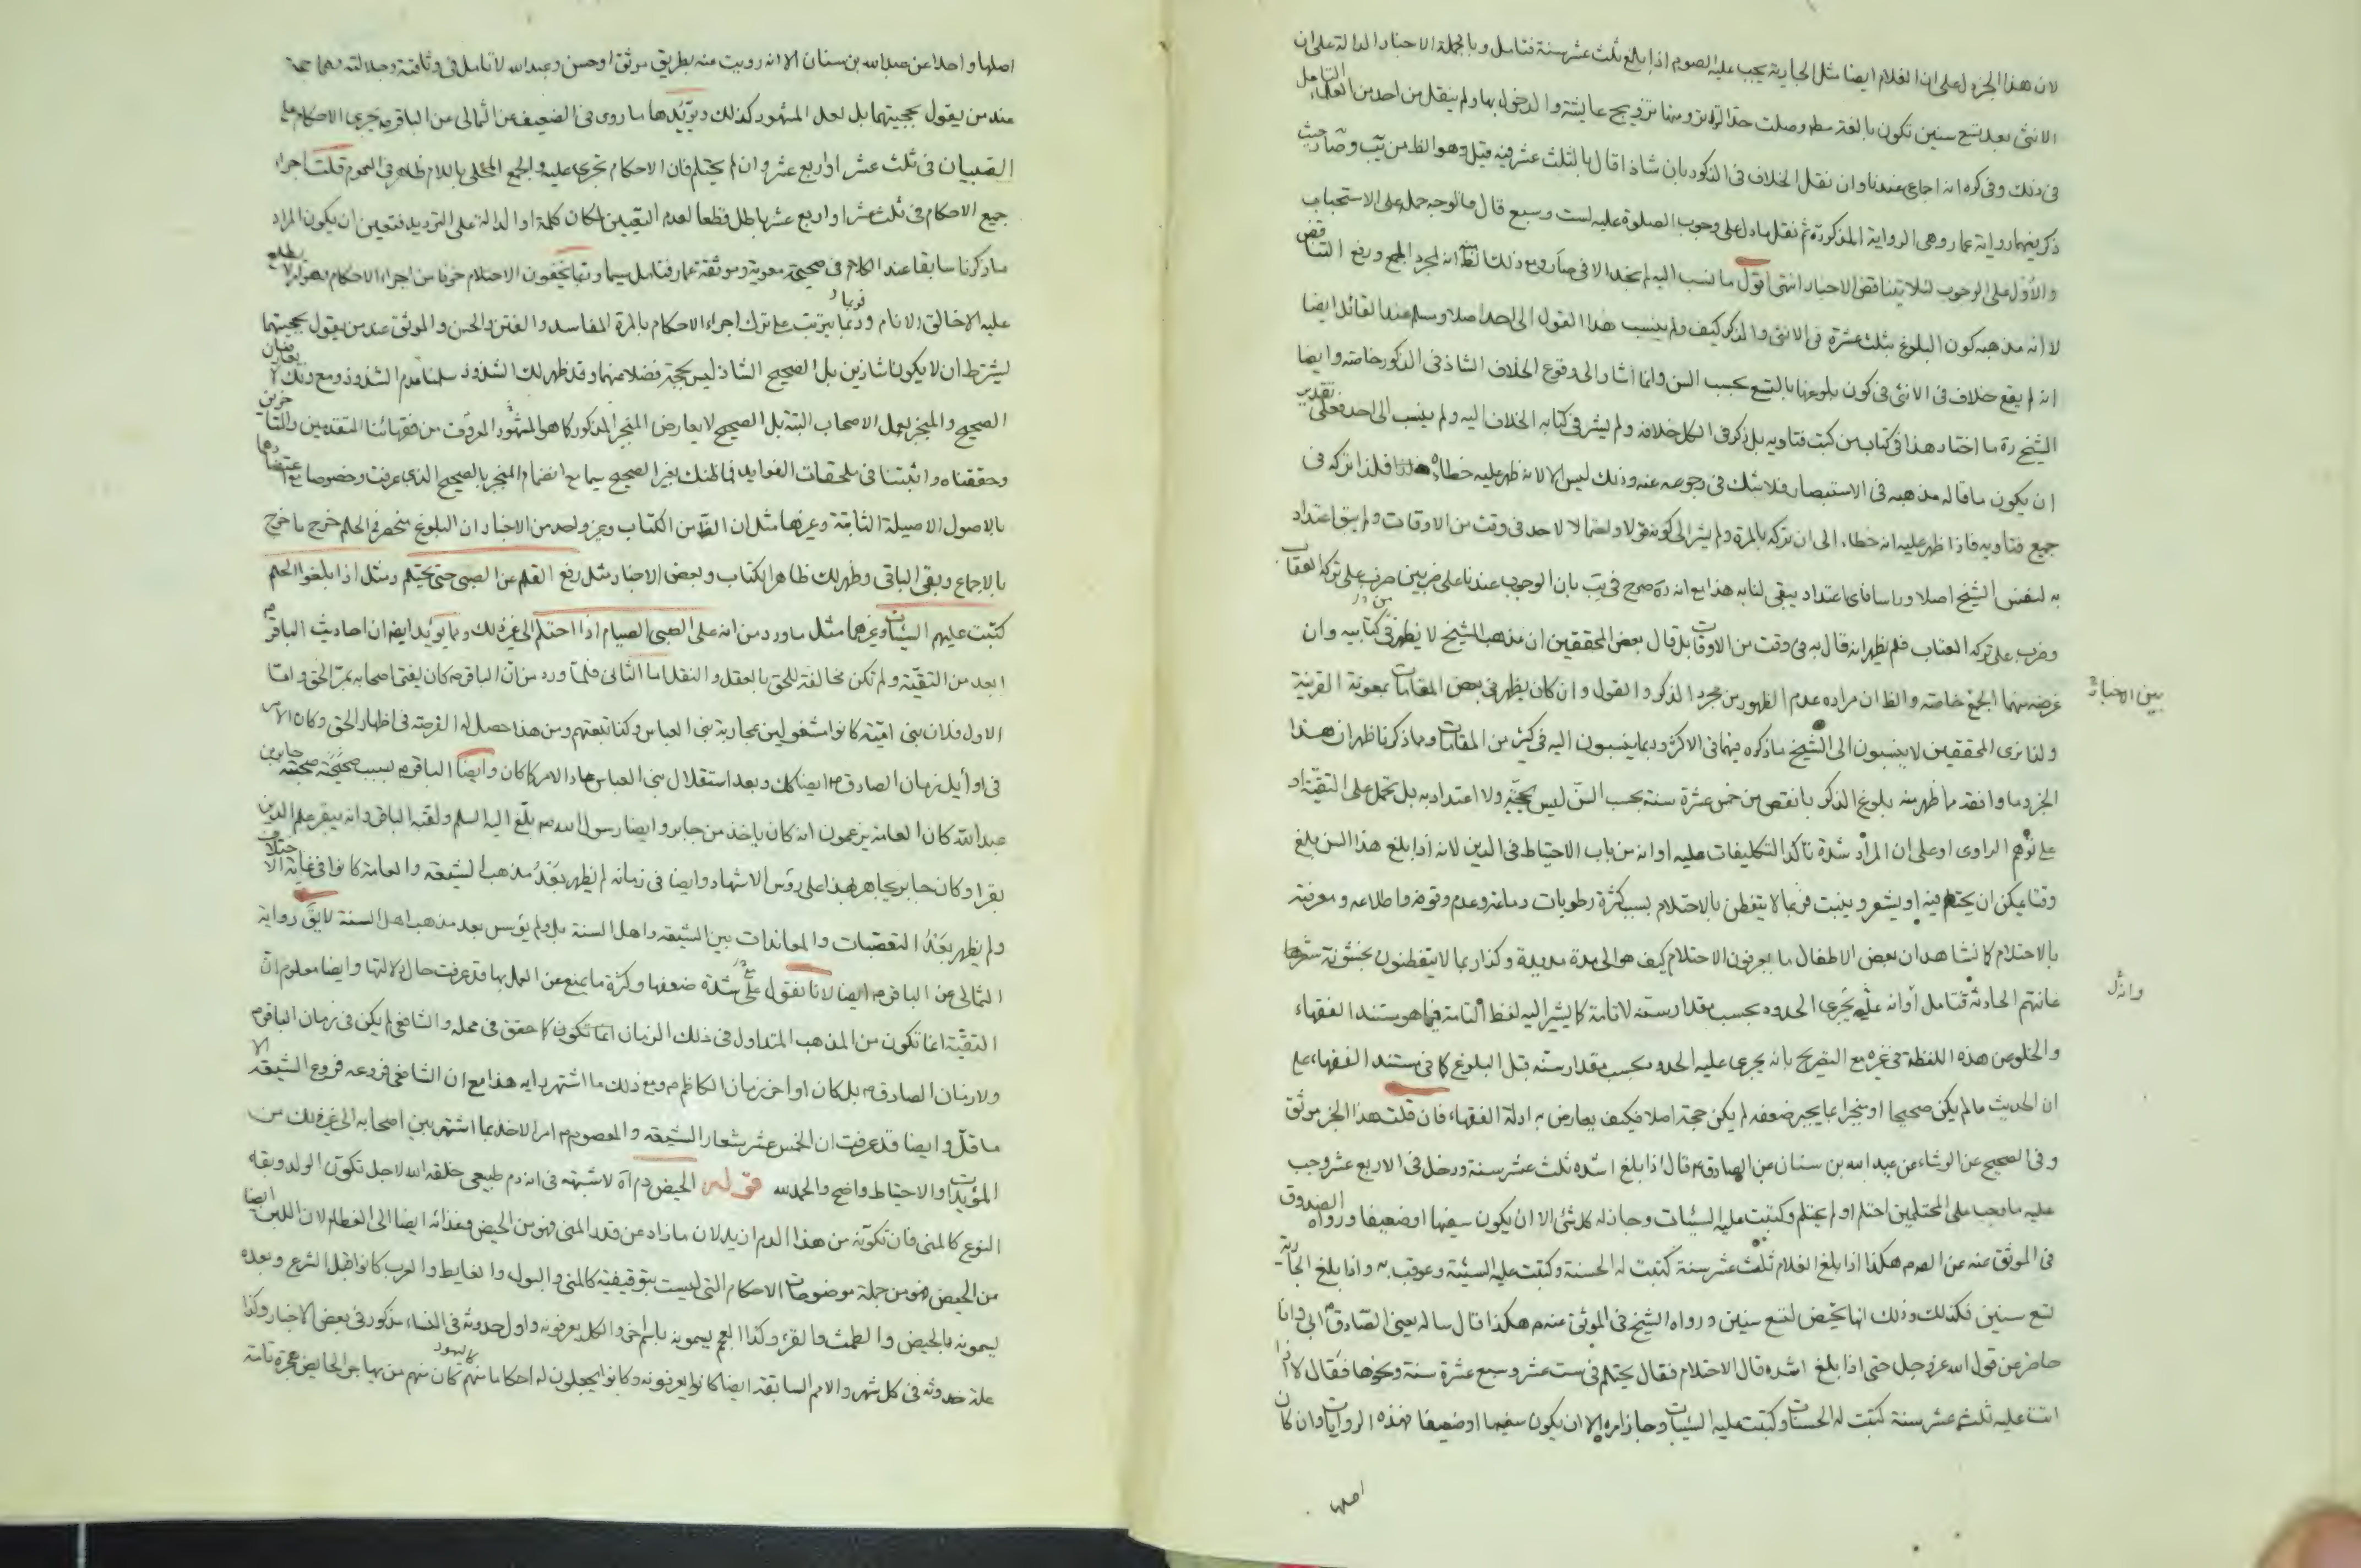 لان هذا الجزء لعلى ان الغلام ايضا مثل الجارية يجب عليه الصوم اذا بلغ ثلث عشر سنة فتامل وبالجملة الاخبار الدالة على ان
الانثى بعد تسع سنين تكون بالغة وصلت حد التواتر ومنها تزويج عايشة والدخول بها ولم ينقل من احد من العلماء التامل
فى ذلك وفى كره انه اجماع عندنا وان نقل الخلاف فى الذكور بان شاذا قال بالثلث عشر فيه قيل وهو الظ من يب وصا حيث
ذكر فيهما رواية عمار وهى الرواية المذكورة ثم نقل ما دل على وجوب الصلوة عليه لست وسبع قال فالوجه حمله على الاستحباب
والاول على الوجوب لئلا يتناقض الاخبار انتهى اقول ما نسب اليه لم نجد الا فى صا ومع ذلك الظ منه انه لمجرد الجمع ورفع التناقض
لا انه مذهبه كون البلوغ بثلث عشرة فى الانثى والذكر كيف ولم ينسب هذا القول الى احد اصلا وسلم عند القائل ايضا
انه لم يقع خلاف فى الانثى فى كون بلوغها بالتسع بحسب السن وانما اشار الى وقوع الخلاف الشاذ فى الذكور خاصة وايضا
الشيخ ره ما اختار هذا فى كتاب من كتب فتاويه بل ذكر فى الكل خلافه ولم يشر فى كتابه الخلاف اليه ولم ينسب الى احد فعلى تقدير
ان يكون ما قاله مذهبه فى الاستبصار فلا شك فى رجوعه عنه وذلك ليس الا لانه ظهر عليه خطاؤه فلذا تركه فى
جميع فتاويه فاذا ظهر عليه انه خطاء الى ان تركه بالمرة ولم يشر الى كونه قولا ولا احتمالا لاحد فى وقت من الاوقات ولم يبق اعتداد
به لنفس الشيخ اصلا وراسا فاى اعتداد يبقى لنا به هذا مع انه ره صرح فى يب بان الوجوب عندنا على ضربين ضرب على تركه العقاب
وضرب على تركه العتاب فلم يظهر انه قال به فى وقت من الاوقات بل قال بعض المحققين ان مذهب الشيخ لا يظهر من كتابيه وان
غرضه منهما الجمع بين الاخبار خاصة والظ ان مراده عدم الظهور من مجرد الذكر والقول وان كان يظهر فى بعض المقامات بمعونة القرينة
ولذا نرى المحققين لا ينسبون الى الشيخ ما ذكره فيهما فى الاكثر وربما ينسبون اليه فى كثير من المقامات ومما ذكرنا ظهر ان هذا
الخبر وما وافقه مما ظهر منه بلوغ الذكر بانقص من خمس عشرة سنة بحسب السن ليس بحجة ولا اعتداد به بل تحمل على التقية او
على توهم الراوى او على ان المراد شدة تاكد التكليفات عليه او انه من باب الاحتياط فى الدين لانه اذا بلغ هذا السن بلغ
وقتا يمكن ان يحتلم فيه او يشعر وينبت فربما لا يتفطن بالاحتلام بسبب كثرة رطوبات دماغه وعدم وقوفه واطلاعه ومعرفته
بالاحتلام كما نشاهد ان بعض الاطفال ما يعرفون الاحتلام كيف هو الى مدة مديدة وكذا ربما لا يتفطنون بخشونة شعر
عانتهم الحادثة فتامل او انه عليه يجرى الحدود بحسب مقدار سنه لا تامة كما يشير اليه لفظ التامة فيما هو مستند الفقهاء
والخلو عن هذه اللفظة فى غيره مع التصريح بانه يجرى عليه الحدود بحسب مقدار سنه قبل البلوغ كما فى مستند الفقهاء على
ان الحديث ما لم يكن صحيحا او منجبرا بما يجبر ضعفه لم يكن حجة اصلا فكيف يعارض به ادلة الفقهاء فان قلت هذا الخبر موثق
وفى الصحيح عن الوشاء عن عبد الله بن سنان عن الصادق ع قال اذا بلغ اشده ثلث عشر سنة ودخل فى الاربع عشر وجب
عليه ما وجب على المحتلمين احتلم او لم يحتلم وكتبت عليه السيئات وجاز له كل شئ الا ان يكون سفيها او ضعيفا ورواه الصدوق
فى الموثق عنه عن الصم هكذا اذا بلغ الغلام ثلث عشر سنة كتبت له الحسنة وكتبت عليه السيئة وعوقب به واذا بلغ الجارية
تسع سنين فكذلك وذلك انها تحيض لتسع سنين ورواه الشيخ فى الموثق عنه م هكذا قال ساله يعنى الصادق ابى وانا
حاضر عن قول الله عز وجل حتى اذا بلغ اشده قال الاحتلام فقال يحتلم فى ست عشر وسبع عشرة سنة ونحوها فقال لا اذا
اتت عليه ثلث عشر سنة كتبت له الحسنات وكتبت عليه السيئات وجاز امره الا ان يكون سفيها او ضعيفا فهذه الروايات وان كان
اصلها
بين الاخبار
اصلها واحدا عن عبد الله بن سنان الا انه رويت عنه بطريق موثق او حسن وعبد الله لا تامل فى وثاقته وجلالته فهما حجة
عند من يقول بحجيتهما بل لعل المشهور كذلك ويؤيدها ما روى فى الضعيف عن الثمالى عن الباقر م يجرى الاحكام على
الصبيان فى ثلث عشر او اربع عشر وان لم يحتلم فان الاحكام تجرى عليه والجمع المحلى باللام ظاهر فى العموم قلت اجراء
جميع الاحكام فى ثلث عشر او اربع عشر باطل قطعا لعدم التعيين لمكان كلمة او الدالة على الترديد فتعين ان يكون المراد
ما ذكرنا سابقا عند الكلام فى صحيحة معوية وموثقة عمار فتامل سيما وربما يخفون الاحتلام خوفا من اجراء الاحكام بقول لا يطلع
عليه الا خالق الانام وربما يترتب على ترك اجراء الاحكام بالمرة المفاسد والفتن والحسن والموثق عند من يقول بحجيتهما
ليشترط ان لا يكونا شاذين بل الصحيح الشاذ ليس بحجة فضلا عنهما وقد ظهر لك الشذوذ سلمنا عدم الشذوذ ومع ذلك لا يعارضان
الصحيح والمنجبر بعمل الاصحاب البتة بل الصحيح لا يعارض المنجبر المذكور كما هو المشهور المعروف من فقهائنا المتقدمين والمتاخرين
وحققناه واثبتنا فى ملحقات الفوايد فما ظنك بغير الصحيح سيما مع انضمام المنجبر بالصحيح الذى عرفت وخصوصا مع اعتضادها
بالاصول الاصيلة الثابتة وغيرها مثل ان الظ من الكتاب وغير واحد من الاخبار ان البلوغ منحصر فى الحلم خرج ما خرج
بالاجماع وبقى الباقى وظهر لك ظاهر الكتاب وبعض الاخبار مثل رفع القلم عن الصبى حتى يحتلم ومثل اذا بلغوا الحلم
كتبت عليهم السيئات وغيرهما مثل ما ورد من انه على الصبى الصيام اذا احتلم الى غير ذلك ومما يؤيد ايضا ان احاديث الباقر م
ابعد من التقية ولم تكن مخالفة للحق بالعقل والنقل اما الثانى فلما ورد من ان الباقر م كان يفتى اصحابه بمر الحق واما
الاول فلان بنى امية كانوا مشغولين بمحاربة بنى العباس وكذا تبعتهم ومن هذا حصل له الفرصة فى اظهار الحق وكان الامر
فى اوايل زمان الصادق م ايضا كك وبعد استقلال بنى العباس عاد الامر كما كان وايضا الباقر م بسبب صحبته جابر بن
عبد الله كان العامة يزعمون انه كان ياخذ من جابر وايضا رسول الله ص بلغ اليه السلم ولقبه الباقر وانه يبقر علم الدين
بقرا وكان جابر يجاهر بهذا على رؤس الاشهاد وايضا فى زمانه لم يظهر بعد مذهب الشيعة والعامة كانوا فى غاية الاختلاف
ولم يظهر بعد التعصبات والمعاندات بين الشيعة واهل السنة بل ولم يؤسس بعد مذهب اهل السنة لا يق رواية
الثمالى عن الباقر م ايضا لانا نقول على شدة ضعفها وكثرة ما يمنع عن العمل بها قد عرفت حال دلالتها وايضا معلوم ان
التقية انما تكون من المذهب المتداول فى ذلك الزمان انما تكون كما حقق فى محله والشافعى لم يكن فى زمان الباقر م
ولا زمان الصادق م بل كان اواخر زمان الكاظم م ومع ذلك ما اشتهر رايه هذا مع ان الشافعى فروعه فروع الشيعة الا
ما قل وايضا قد عرفت ان الخمس عشر شعار الشيعة والمعصوم م امر الاخذ بما اشتهر بين اصحابه الى غير ذلك من
المؤيدات والاحتياط واضح والحمد لله قوله الحيض دم اه لا شبهة فى انه دم طبيعى خلقه الله لاجل تكون الولد وبقاء
النوع كالمنى فان تكونه من هذا الدم ازيد لان ما زاد عن قدر المنى فهو من الحيض وغذائه ايضا الى الفطام لان اللبن ايضا
من الحيض فهو من جملة موضوعات الاحكام التى ليست بتوقيفية كالمنى والبول والغايط والعرب كانوا قبل الشرع وبعده
يسمونه بالحيض والطمث والقرء وكذا العجم يسمونه باسم اخر والكل يعرفونه واول حدوثه فى النساء مذكور فى بعض الاخبار وكذا
علة حدوثه فى كل شهر والامم السابقة ايضا كانوا يعرفونه وكانوا يجعلون له احكاما منهم كاليهود كان منهم من يهاجر الحايض هجرة تامة